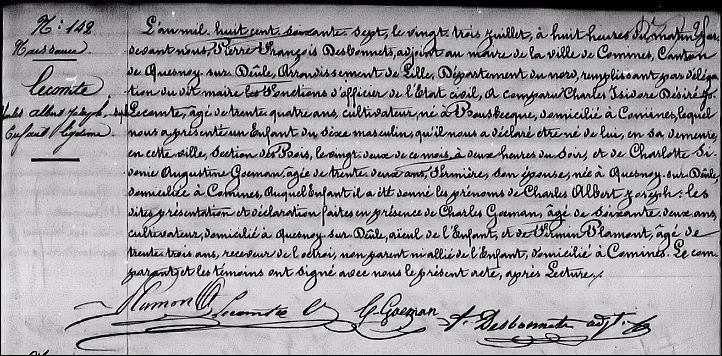 N.° 142
Naissance
Lecomte
Charles Albert Joseph
Enfant légitime
L'an mil huit cent soixante sept, le vingt trois juillet, à huit heures du matin, par
devant nous, Pierre François Desbonnets, adjoint au maire de la ville de Comines, Canton
de Quesnoy-sur-Deûle, Arrondissement de Lille, Département du nord, remplissant par déléga
tion du dit maire les fonctions d'officier de l'Etat civil, a comparu Charles Isidore Désiré
Lecomte, âgé de trente quatre ans, cultivateur, né à Bousbecque, domicilié à Comines, lequel
nous a présenté un Enfant du Séxe masculin, qu'il nous a déclaré etre né de lui, en sa demeure,
en cette ville, Section des Bois, le vingt deux de ce mois, à deux heures du Soir, et de Charlotte Si
donie Augustine Goeman, âgée de trente deux ans, fermière, son épouse, née à Quesnoy-sur-Deûle,
domiciliée à Comines, Auquel Enfant il a été donné les prénoms de Charles Albert Joseph: les
dites présentation et déclaration faites en présence de Charles Goeman, âgé de soixante deux ans,
cultivateur, domicilié à Quesnoy-sur-Deûle, aïeul de l'Enfant, et de Firmin Plamont, âgé de
trente trois ans, receveur de l'octroi, non parent ni allié de l'Enfant, domicilié à Comines. Le com
parant et les témoins ont signé avec nous le présent acte, après Lecture,
Plamont Lecomte C. Goeman f. Desbonnets adjt.